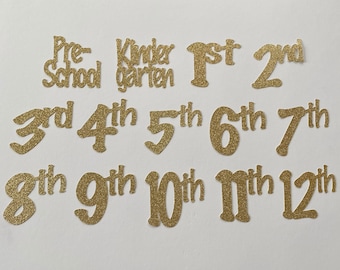 Pre-School Kindergarten 1st 2nd
3rd 4th 5th 6th 7th
8th 9th 10th 11th 12th